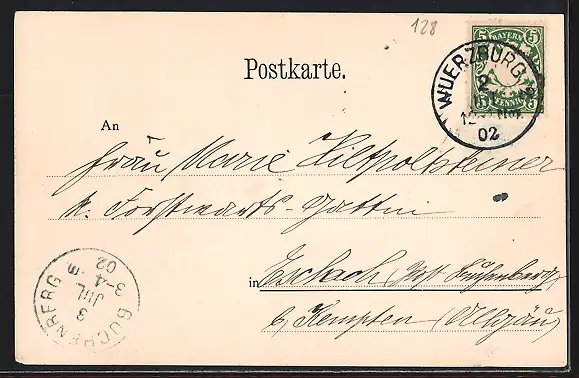 128
BAYERN
5 5
5 PFENNIG 5
WUERZBURG 2
02
Postkarte.
An
Frau Marie Hiltpoltsteiner
k. Forstwarts-Gattin
in Eschach, Post Buchenberg
b/ Kempten (Allgäu)
BUCHENBERG
3 JUL
3-4
02